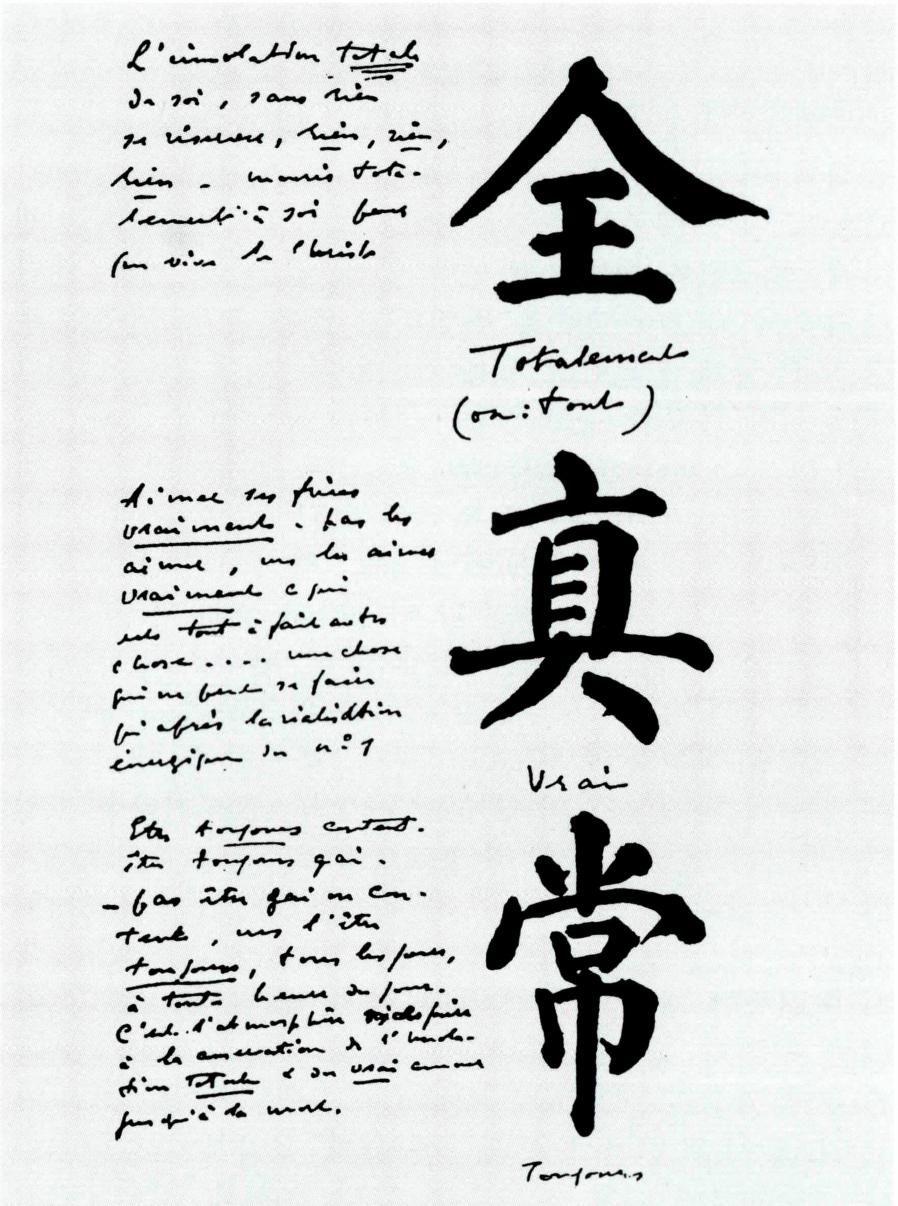 L'immolation totale
de soi, sans rien
se réserver, rien, rien,
rien - mourir tota-
lement à soi pour
que vive le Christ
全
Totalement
(ou : tout)
Aimer ses frères
vraiment - pas les
aimer, mais les aimer
vraiment ce qui
est tout à fait autre
chose .... une chose
qui ne peut se faire
qu'après la réalisation
énergique du n° 1
真
Vrai
Etre toujours content.
être toujours gai.
- pas être gai ou con-
tent, mais l'être
toujours, tous les jours,
à toute heure du jour.
C'est l'atmosphère
à la conservation de l'immola-
tion totale & du vrai amour
jusqu'à la mort.
常
Toujours